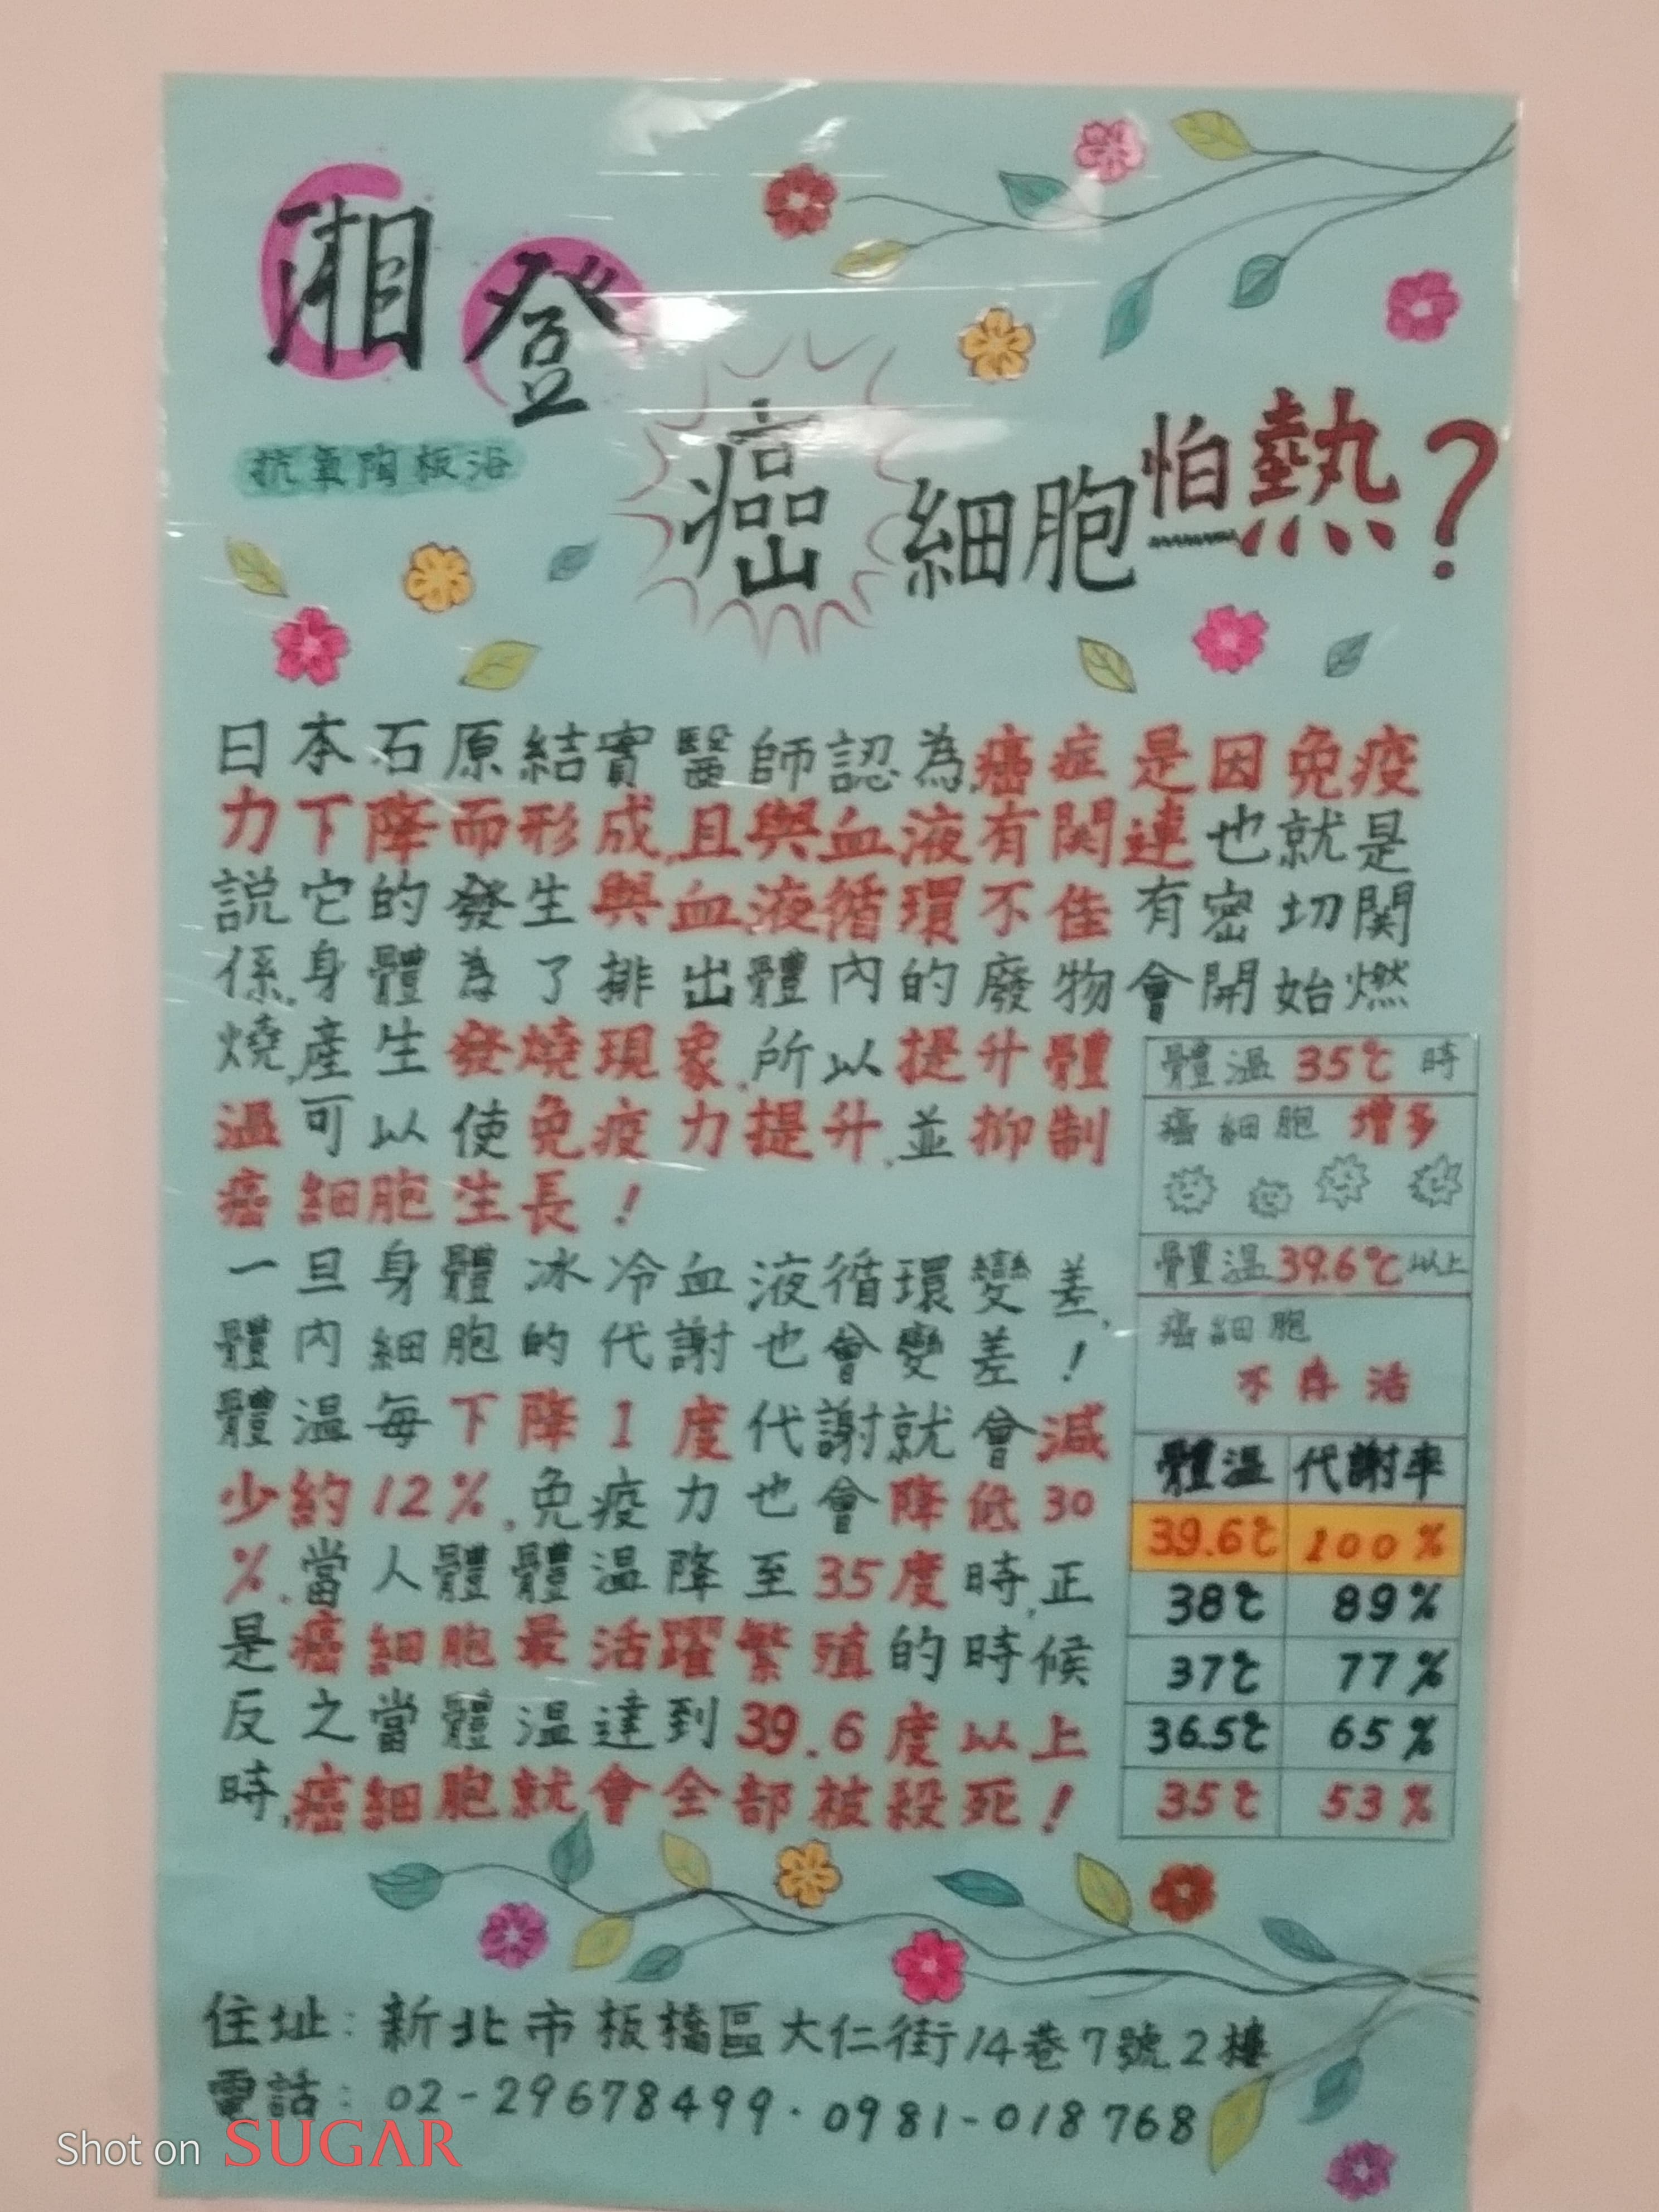 湘登
抗氧陶板浴
癌細胞怕熱?
日本石原結實醫師認為,癌症是因免疫
力下降而形成,且與血液有関連也就是
説它的發生與血液循環不佳有密切関
係,身體為了排出體內的廢物會開始燃
燒,產生發燒現象,所以提升體
溫可以使免疫力提升,並抑制
癌細胞生長!
一旦身體冰冷血液循環變差,
體內細胞的代謝也會變差!
體溫每下降1度代謝就會減
少約12%,免疫力也會降低30
%,當人體體溫降至35度時,正
是癌細胞最活躍繁殖的時候
反之當體溫達到39.6度以上
時,癌細胞就會全部被殺死!
體溫35℃時
癌細胞增多
體溫39.6℃以上
癌細胞
不存活
體溫 代謝率
39.6℃ 100%
38℃ 89%
37℃ 77%
36.5℃ 65%
35℃ 53%
住址:新北市板橋區大仁街14巷7號2樓
電話:02-29678499·0981-018768
Shot on SUGAR